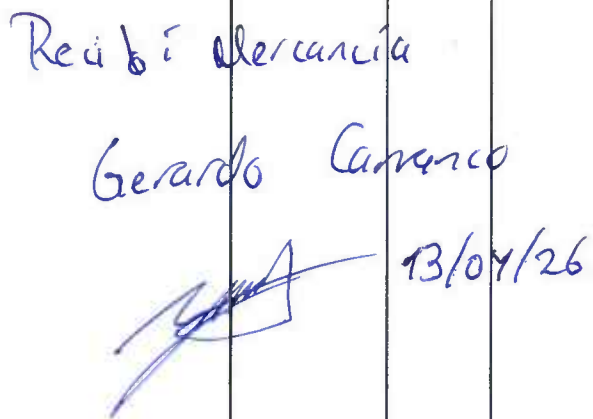 Recibí Mercancía
Gerardo Carranco
13/04/26